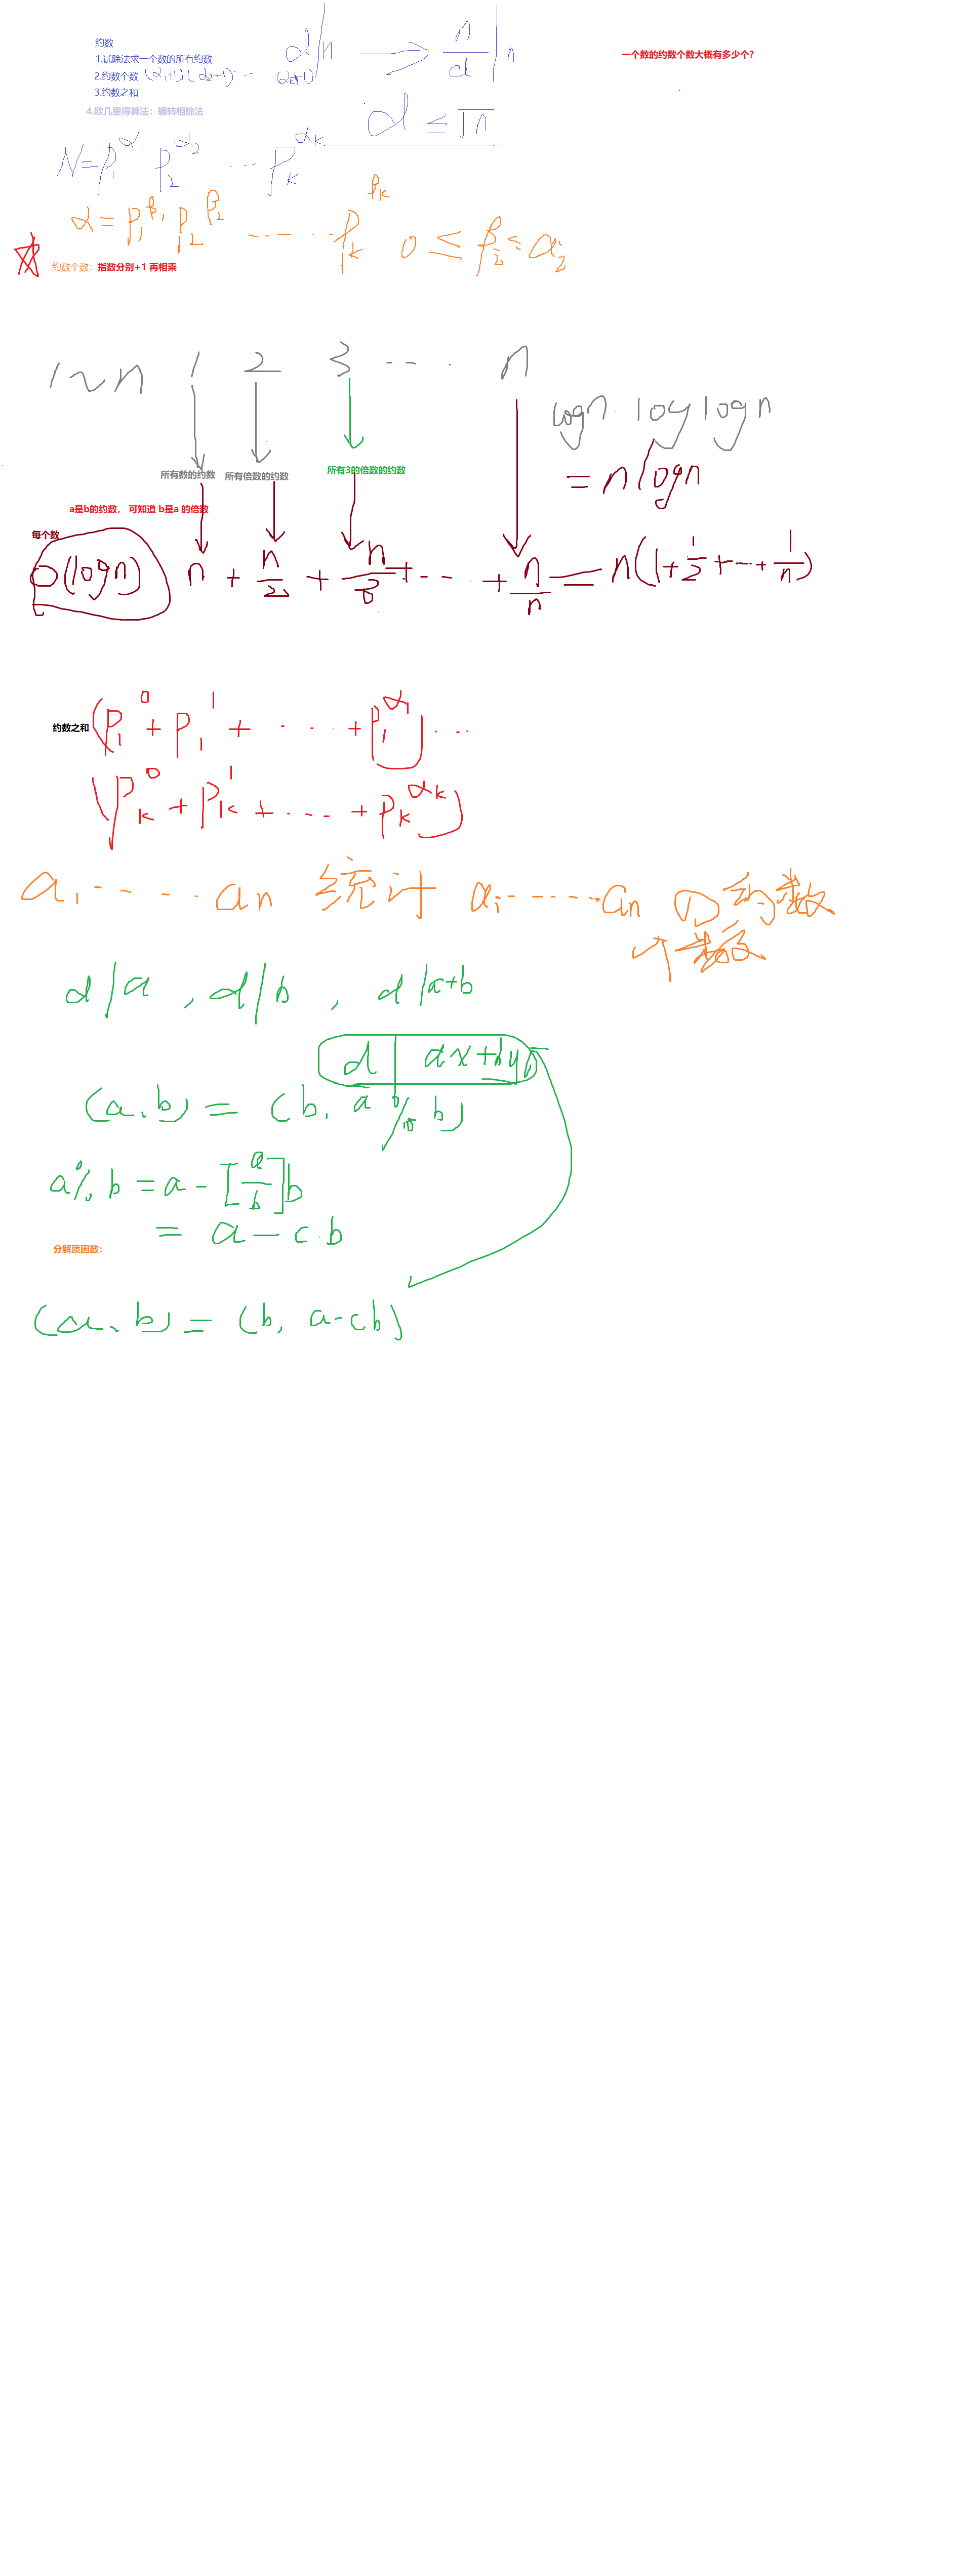 约数
1.试除法求一个数的所有约数
2.约数个数 (α₁+1)(α₂+1)··· (αₖ+1)
3.约数之和
4.欧几里得算法：辗转相除法
d|n → n/d | n
d ≤ √n
一个数的约数个数大概有多少个？
N=p₁^α₁ p₂^α₂ ···· pₖ^αₖ
d=p₁^β₁ p₂^β₂ ······ pₖ^βₖ 0 ≤ βᵢ ≤ αᵢ
约数个数：指数分别+1 再相乘
1~n 1 2 3 ··· n
logn loglogn
= nlogn
所有数的约数 所有倍数的约数 所有3的倍数的约数
a是b的约数， 可知道 b是a 的倍数
每个数
O(logn) n + n/2 + n/3 + ··· + n/n = n(1+1/2+···+1/n)
约数之和 (p₁^0 + p₁^1 + ···· + p₁^α₁) ···
(pₖ^0 + pₖ^1 + ···· + pₖ^αₖ)
a₁ ····· aₙ 统计 a₁ ······ aₙ 的约数
个数
d|a , d|b , d|a+b
d | ax+by
(a.b) = (b, a % b)
a%b = a - [a/b]b
= a - c.b
分解质因数：
(a.b) = (b, a-cb)